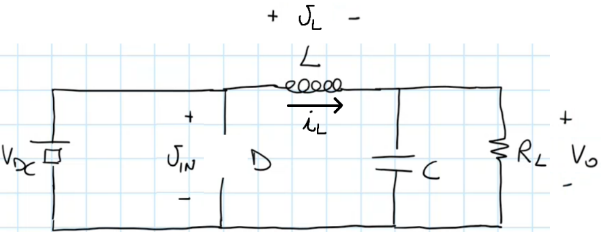 + υL -
L
iL
+
VDC υIN D C RL + Vo
-
-